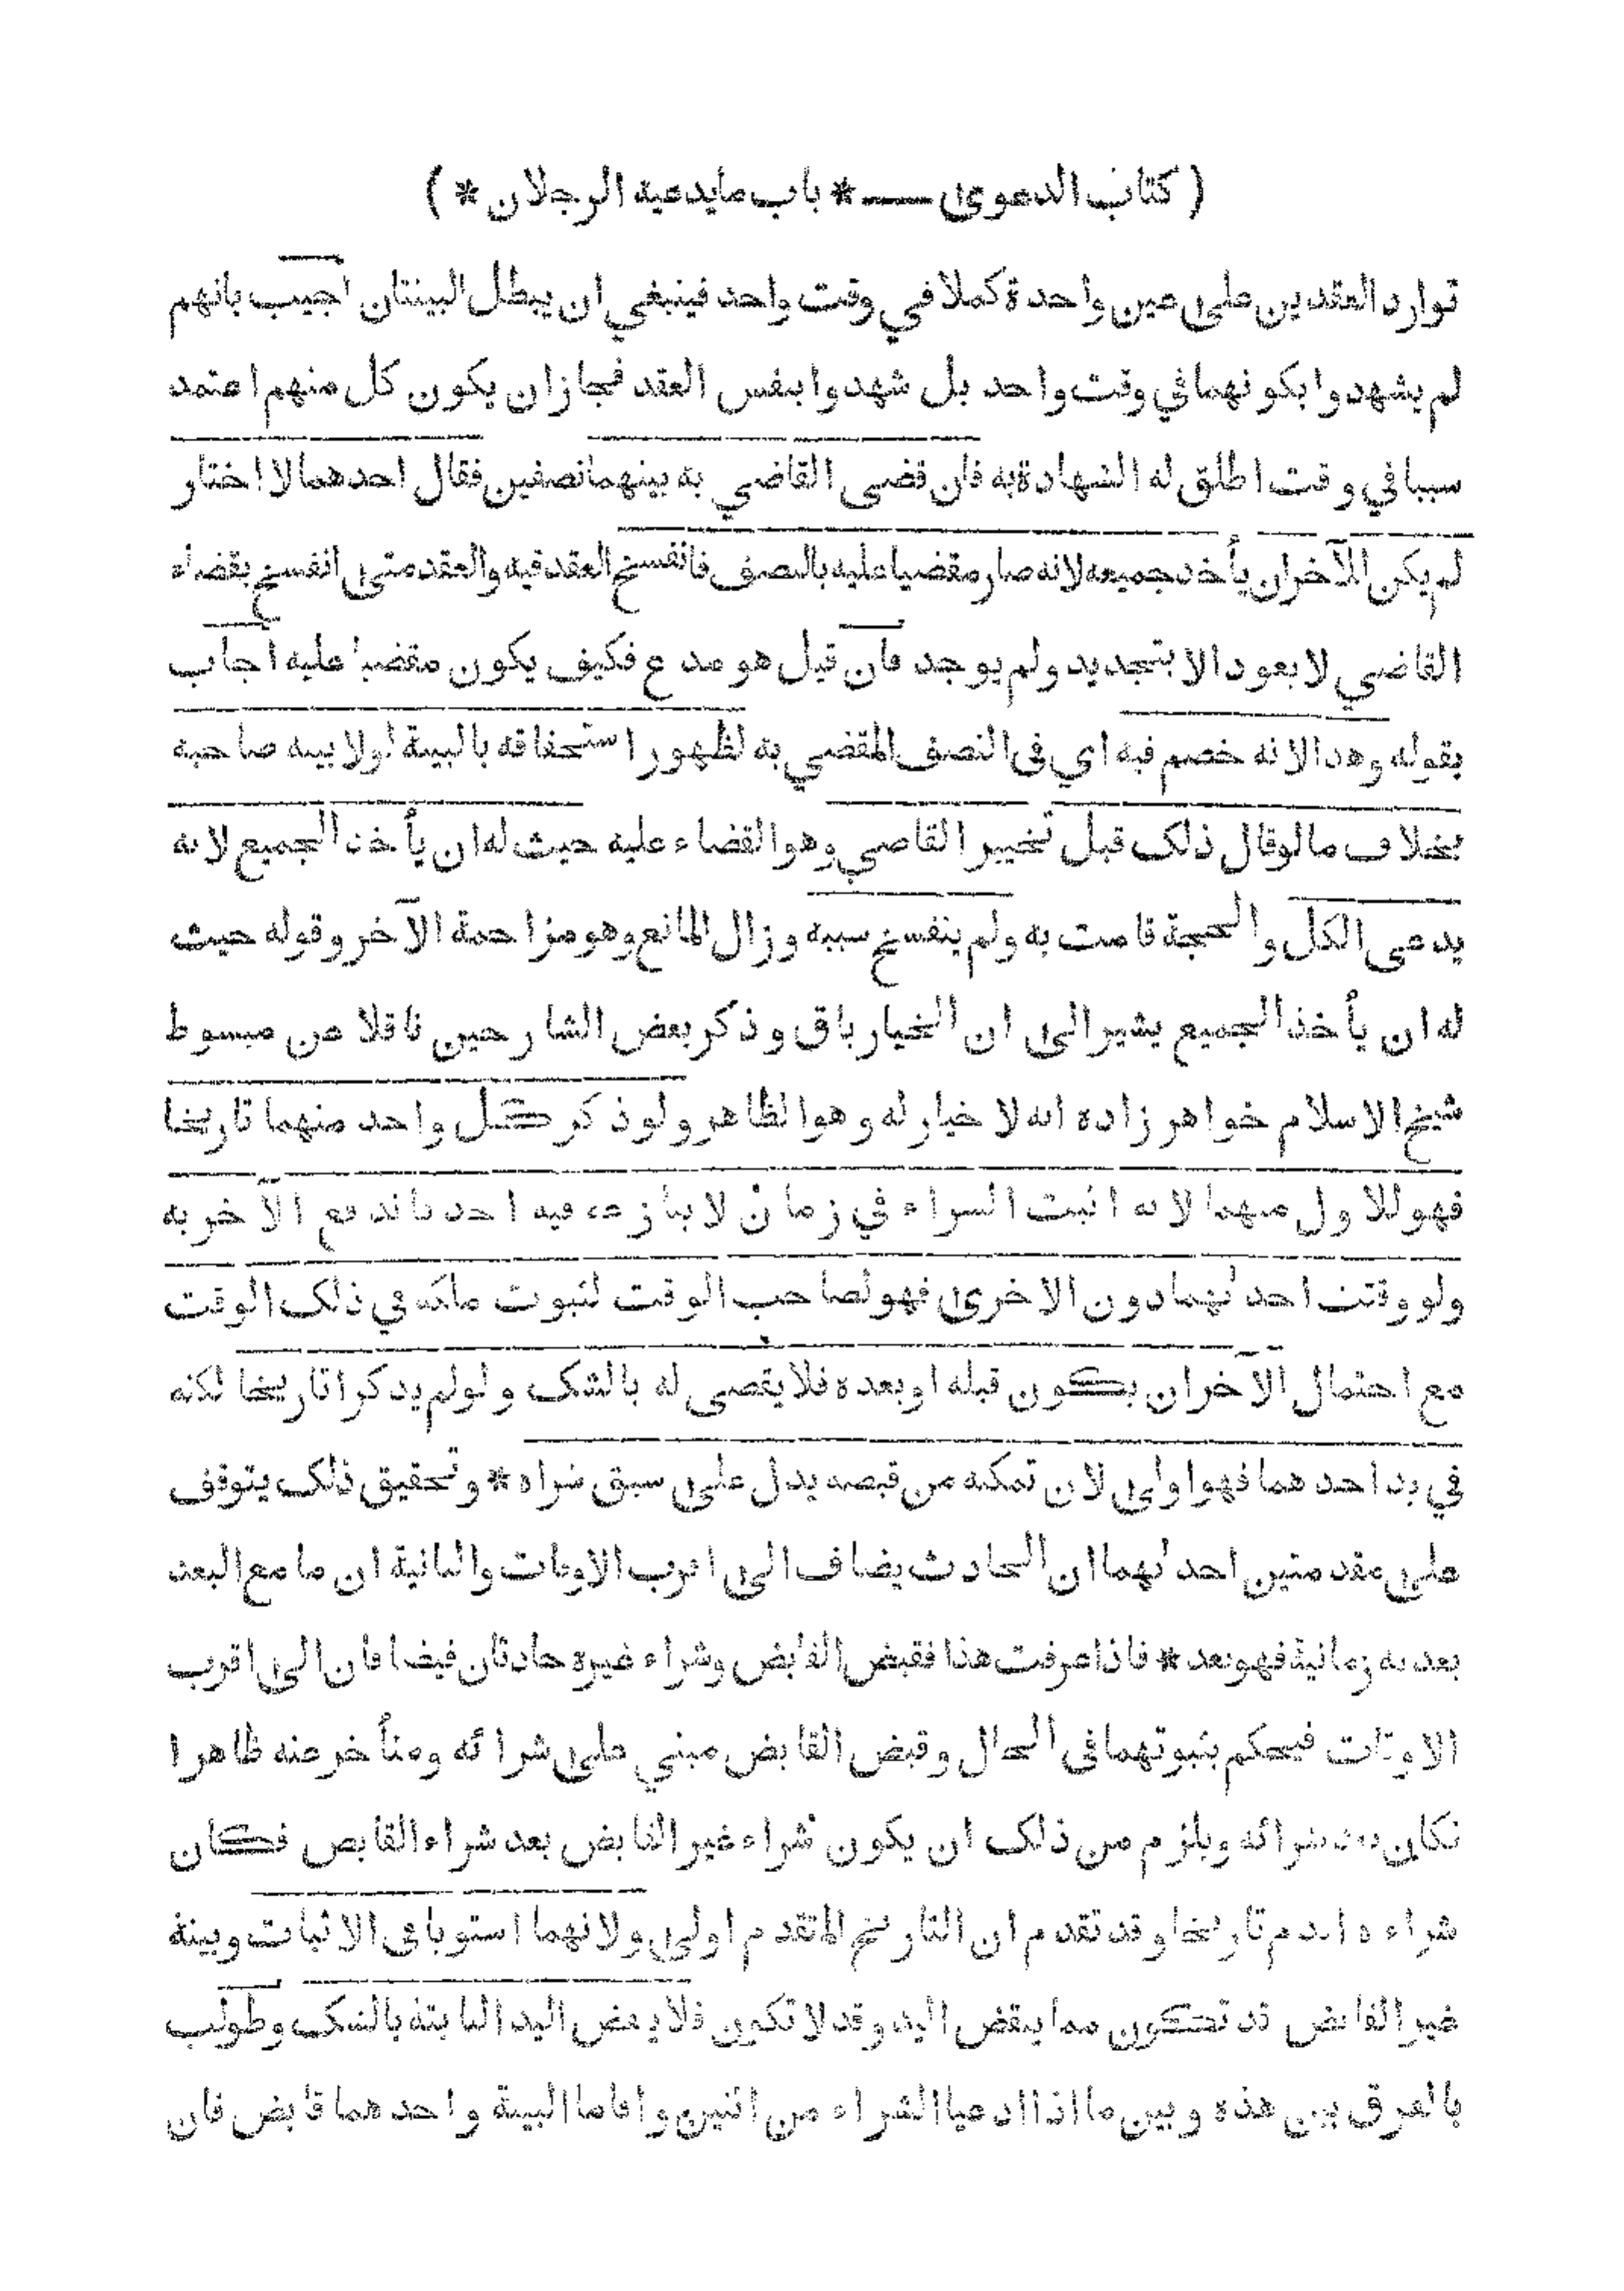 ( كتاب الدعوى — * باب ما يدعيه الرجلان * )
توارد العقدين على عين واحدة كملا في وقت واحد فينبغي ان يبطل البينتان اجيب بانهم
لم يشهدوا بكونهما في وقت واحد بل شهدوا بنفس العقد فجاز ان يكون كل منهم اعتمد
سببا في وقت اطلق له الشهادة به فان قضى القاضي به بينهما نصفين فقال احدهما لا اختار
لم يكن للآخر ان يأخذ جميعه لانه صار مقضيا عليه بالنصف فانفسخ العقد فيه والعقد متى انفسخ بقضاء
القاضي لا يعود الا بتجديد ولم يوجد فان قيل هو مدع فكيف يكون مقضيا عليه اجاب
بقوله وهذا لانه خصم فيه اي في النصف المقضي به لظهور استحقاقه بالبينة لولا بينة صاحبه
بخلاف ما لو قال ذلك قبل تخيير القاضي وهو القضاء عليه حيث له ان يأخذ الجميع لانه
يدعى الكل والحجة قامت به ولم ينفسخ سببه وزال المانع وهو مزاحمة الآخر وقوله حيث
له ان يأخذ الجميع يشير الى ان الخيار باق وذكر بعض الشارحين ناقلا عن مبسوط
شيخ الاسلام خواهر زاده انه لا خيار له وهو الظاهر ولو ذكر كل واحد منهما تاريخا
فهو للاول منهما لانه اثبت الشراء في زمان لا ينازعه فيه احد فاندفع الآخر به
ولو وقتت احدٰهما دون الاخرى فهو لصاحب الوقت لثبوت ملكه في ذلك الوقت
مع احتمال الآخر ان يكون قبله او بعده فلا يقضى له بالشك ولو لم يذكرا تاريخا لكنه
في يد احدهما فهو اولى لان تمكنه من قبضه يدل على سبق شراه * وتحقيق ذلك يتوقف
على مقدمتين احدٰهما ان الحادث يضاف الى اقرب الاوقات والثانية ان ما مع البعد
بعدبه زمانية فهو بعد * فاذا عرفت هذا فقبض القابض وشراء غيره حادثان فيضافان الى اقرب
الاوقات فيحكم بثبوتهما في الحال وقبض القابض مبني على شرائه ومتأخر عنه ظاهرا
فكان بعد شرائه ويلزم من ذلك ان يكون شراء غير القابض بعد شراء القابض فكان
شراءه اقدم تاريخا وقد تقدم ان التاريخ المتقدم اولى ولانهما استويا في الاثبات وبينة
غير القابض قد تكون مما ينقض اليد وقد لا تكون فلا ينقض اليد الثابتة بالشك وطولب
بالفرق بين هذه وبين ما اذا ادعيا الشراء من اثنين واقاما البينة واحدهما قابض فان